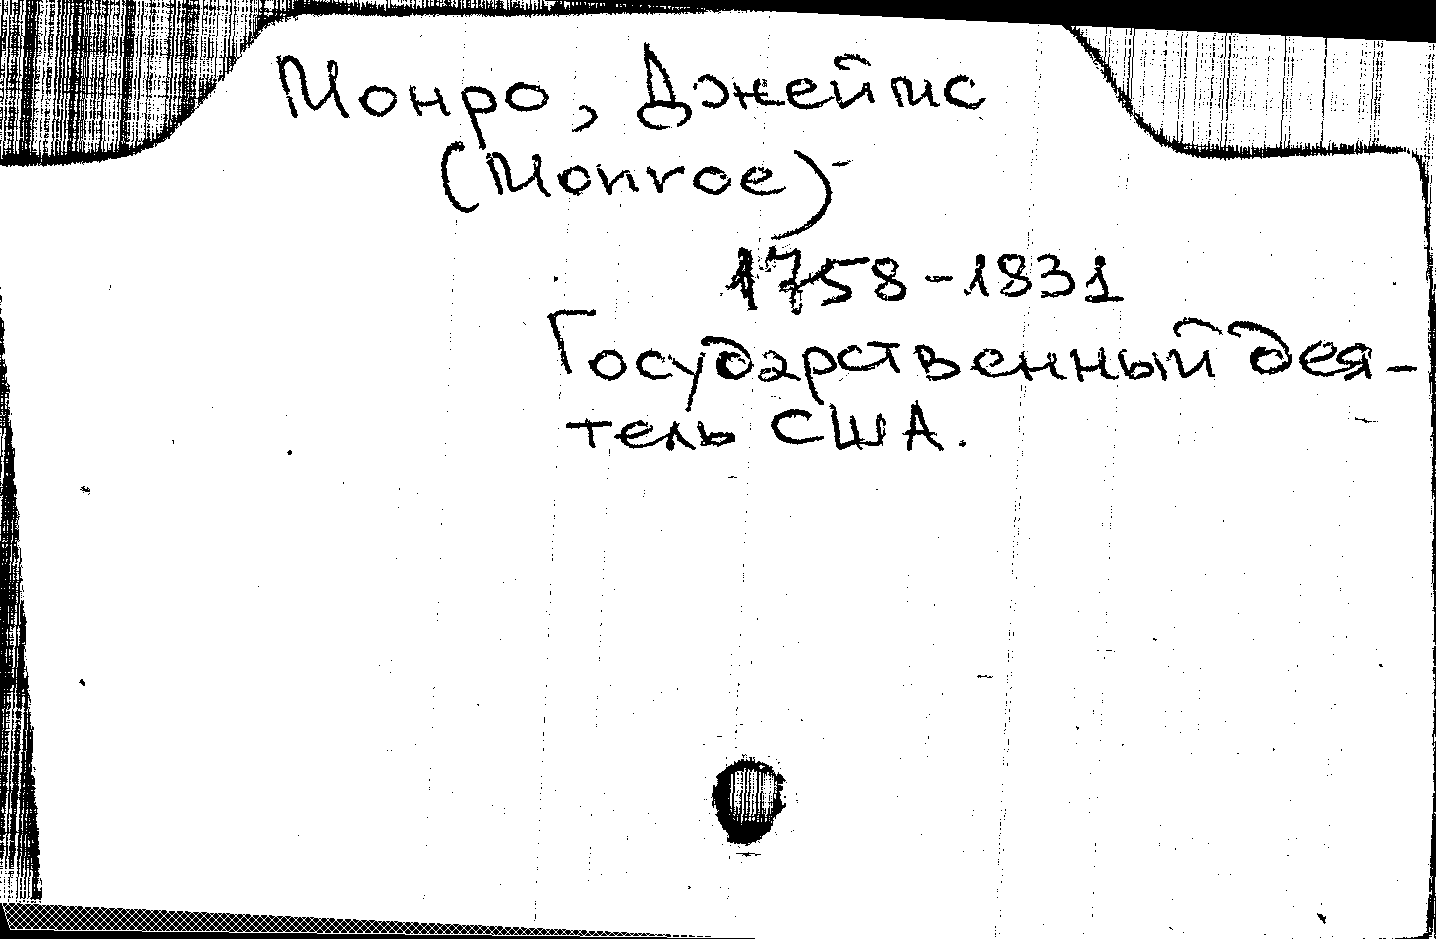 Монро, Джеймс
(Monroe)
1758-1831
Государственный дея-
тель США.